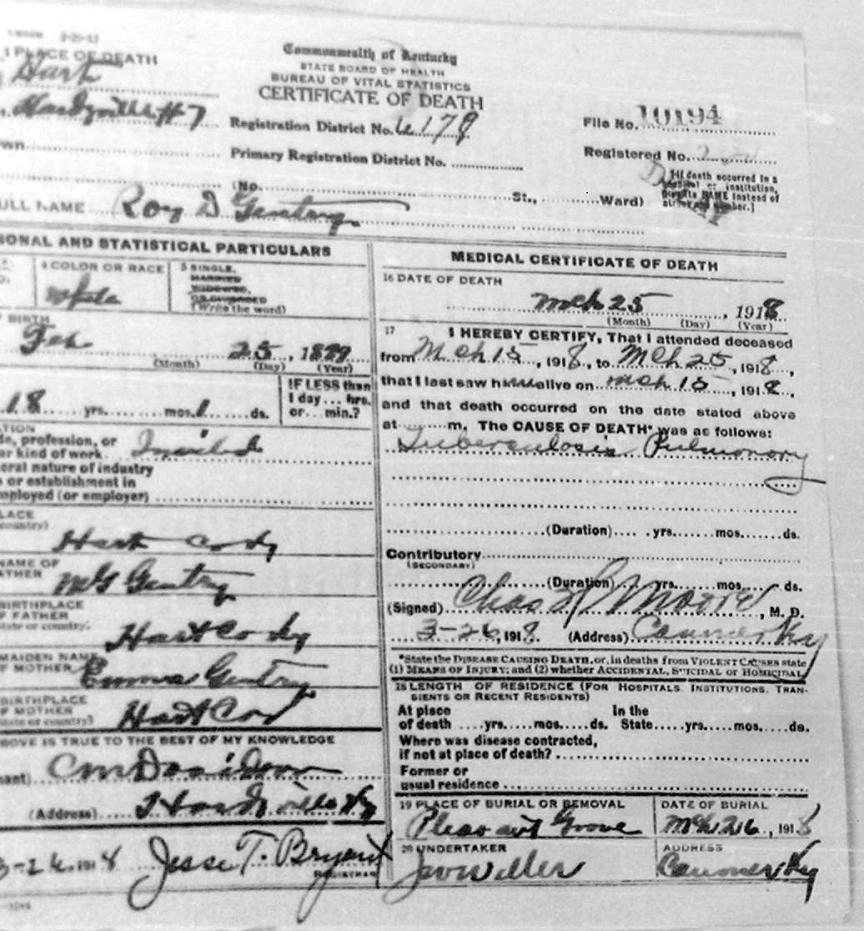 1 PLACE OF DEATH
Hart
Commonwealth of Kentucky
STATE BOARD OF HEALTH
BUREAU OF VITAL STATISTICS
CERTIFICATE OF DEATH
File No. 10194
Registration District No. 6179
Registered No.
Primary Registration District No.
(No. St., Ward)
[If death occurred in a hospital or institution,
NAME instead of
FULL NAME Roy D Gentry
ONAL AND STATISTICAL PARTICULARS
4 COLOR OR RACE
white
5 SINGLE,
MARRIED
WIDOWED,
OR DIVORCED
(Write the word)
BIRTH
Feb 25, 1899
(Month) (Day) (Year)
18 yrs. mos. 1 ds.
IF LESS than
1 day... hrs.
or... min.?
de, profession, or
kind of work
eral nature of industry
or establishment in
mployed (or employer)
Hart Co Ky
NAME OF
FATHER
M G Gentry
BIRTHPLACE
OF FATHER
Hart Co Ky
MAIDEN NAME
OF MOTHER
Emma Gentry
BIRTHPLACE
OF MOTHER
Hart Co
BOVE IS TRUE TO THE BEST OF MY KNOWLEDGE
C M Davidson
(Address) Hardyville Ky
3-26, 1918 Jesse T. Bryant
REGISTRAR
MEDICAL CERTIFICATE OF DEATH
16 DATE OF DEATH
Mch 25, 1918
(Month) (Day) (Year)
17 I HEREBY CERTIFY, That I attended deceased
from Mch 15, 1918, to Mch 25, 1918,
that I last saw him alive on Mch 15, 1918,
and that death occurred on the date stated above
at m. The CAUSE OF DEATH* was as follows:
Tuberculosis Pulmonary
(Duration) yrs. mos. ds.
Contributory
(SECONDARY)
(Duration) yrs. mos. ds.
(Signed) Chas Moore, M. D.
3-26, 1918 (Address) Canmer Ky
*State the DISEASE CAUSING DEATH, or, in deaths from VIOLENT CAUSES state
(1) MEANS OF INJURY; and (2) whether ACCIDENTAL, SUICIDAL or HOMICIDAL
18 LENGTH OF RESIDENCE (FOR HOSPITALS, INSTITUTIONS, TRAN-
SIENTS OR RECENT RESIDENTS)
At place In the
of death yrs. mos. ds. State yrs. mos. ds.
Where was disease contracted,
if not at place of death?
Former or
usual residence
19 PLACE OF BURIAL OR REMOVAL
Pleasant Grove
DATE OF BURIAL
Mch 26, 1918
20 UNDERTAKER
ADDRESS
Canmer Ky